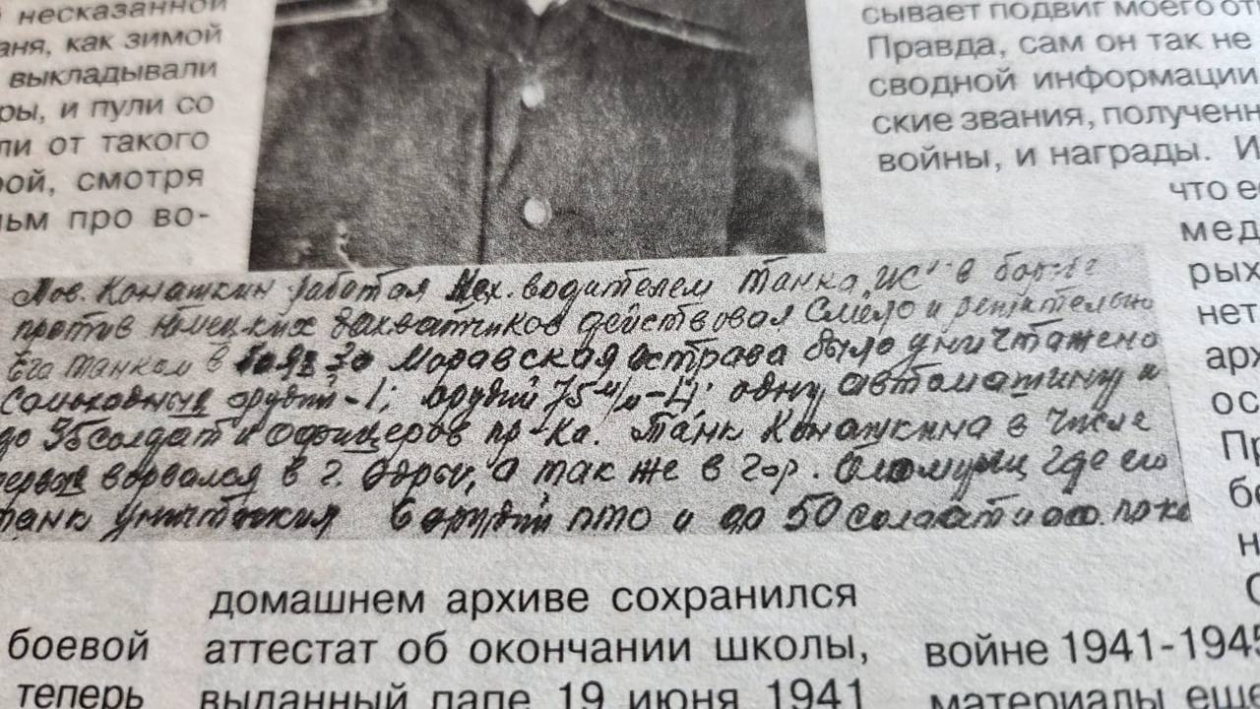 несказанной
аня, как зимой
выкладывали
ры, и пули со
ли от такого
рой, смотря
льм про во-
сывает подвиг моего от
Правда, сам он так не
сводной информации
ские звания, полученн
войны, и награды. И
что е
мед
рых
нет
арх
ос
Пр
бо
н
Тов. Конашкин работая Мех. водителем танка "ИС" в борьбе
против немецких захватчиков действовал Смело и решительно
Его танком в боях за Моравская острава было уничтажено
Самоходных орудий -1; орудий 75 м/м -4; одну автомашину и
до 35 солдат и офицеров пр-ка. Танк Конашкина в числе
первых ворвался в г. Одры, а так же в гор. Оломуци где его
танк уничтожил 6 орудий пто и до 50 солдат и оф.
домашнем архиве сохранился
аттестат об окончании школы,
выданный папе 19 июня 1941
боевой
теперь
войне 1941-1945
материалы еще